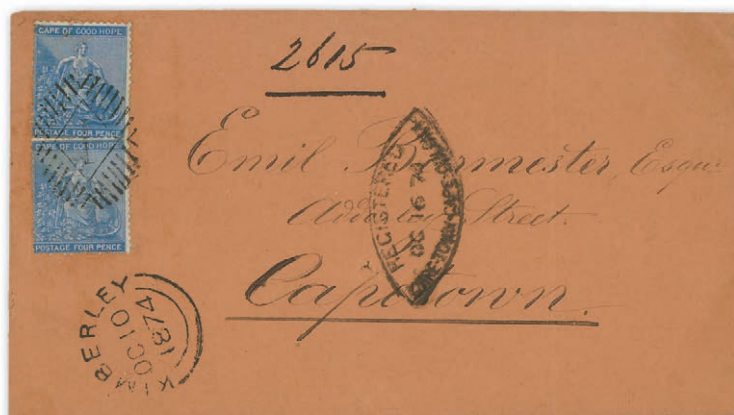 CAPE OF GOOD HOPE
POSTAGE FOUR PENCE
CAPE OF GOOD HOPE
POSTAGE FOUR PENCE
2615
Emil Burmester, Esqu
Street.
Capetown.
REGISTERED
KIMBERLEY
OC 10
1874